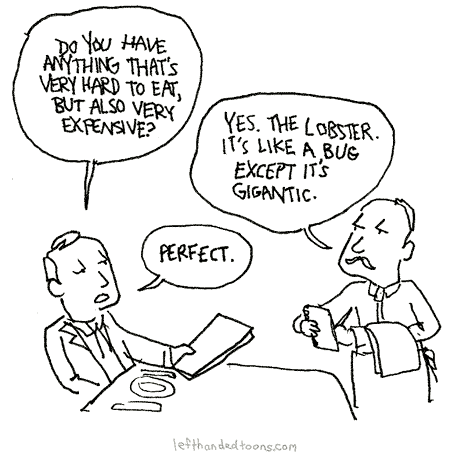 DO YOU HAVE
ANYTHING THAT'S
VERY HARD TO EAT,
BUT ALSO VERY
EXPENSIVE?
YES. THE LOBSTER.
IT'S LIKE A BUG
EXCEPT IT'S
GIGANTIC.
PERFECT.
lefthandedtoons.com